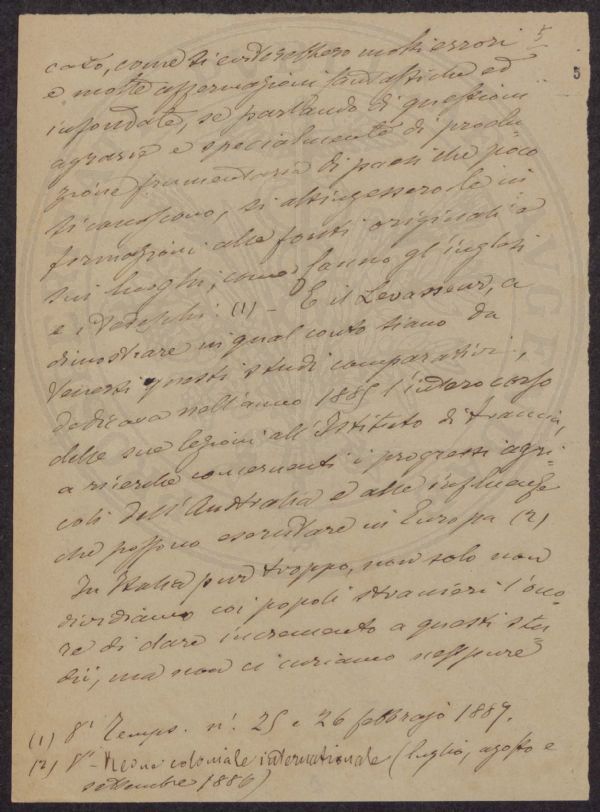 5
5
cato, come si eviterebbero molti errori
e molte affermazioni fantastiche ed
infondate, se parlando di questioni
agrarie e specialmente di produ-
zione frumentaria di paesi che poco
si conoscono, si attingessero le in
formazioni alle fonti originali e
sui luoghi, come fanno gl'inglesi
e i tedeschi. (1) – E il Levasseur, a
dimostrare in qual conto siano da
tenersi questi studi comparativi,
dedicava nell'anno 1885 l'intero corso
delle sue lezioni all'Istituto di Francia,
a ricerche concernenti i progressi agri-
coli dell'Australia e alle influenze
che possono esercitare in Europa (2)
In Italia pur troppo, non solo non
dividiamo coi popoli stranieri l'ono-
re di dare incremento a questi stu-
dii, ma non ci curiamo neppure
(1) V. Temps. n. 25 e 26 febbrajo 1889.
(2) V. – Revue coloniale internationale (luglio, agosto e
settembre 1886)